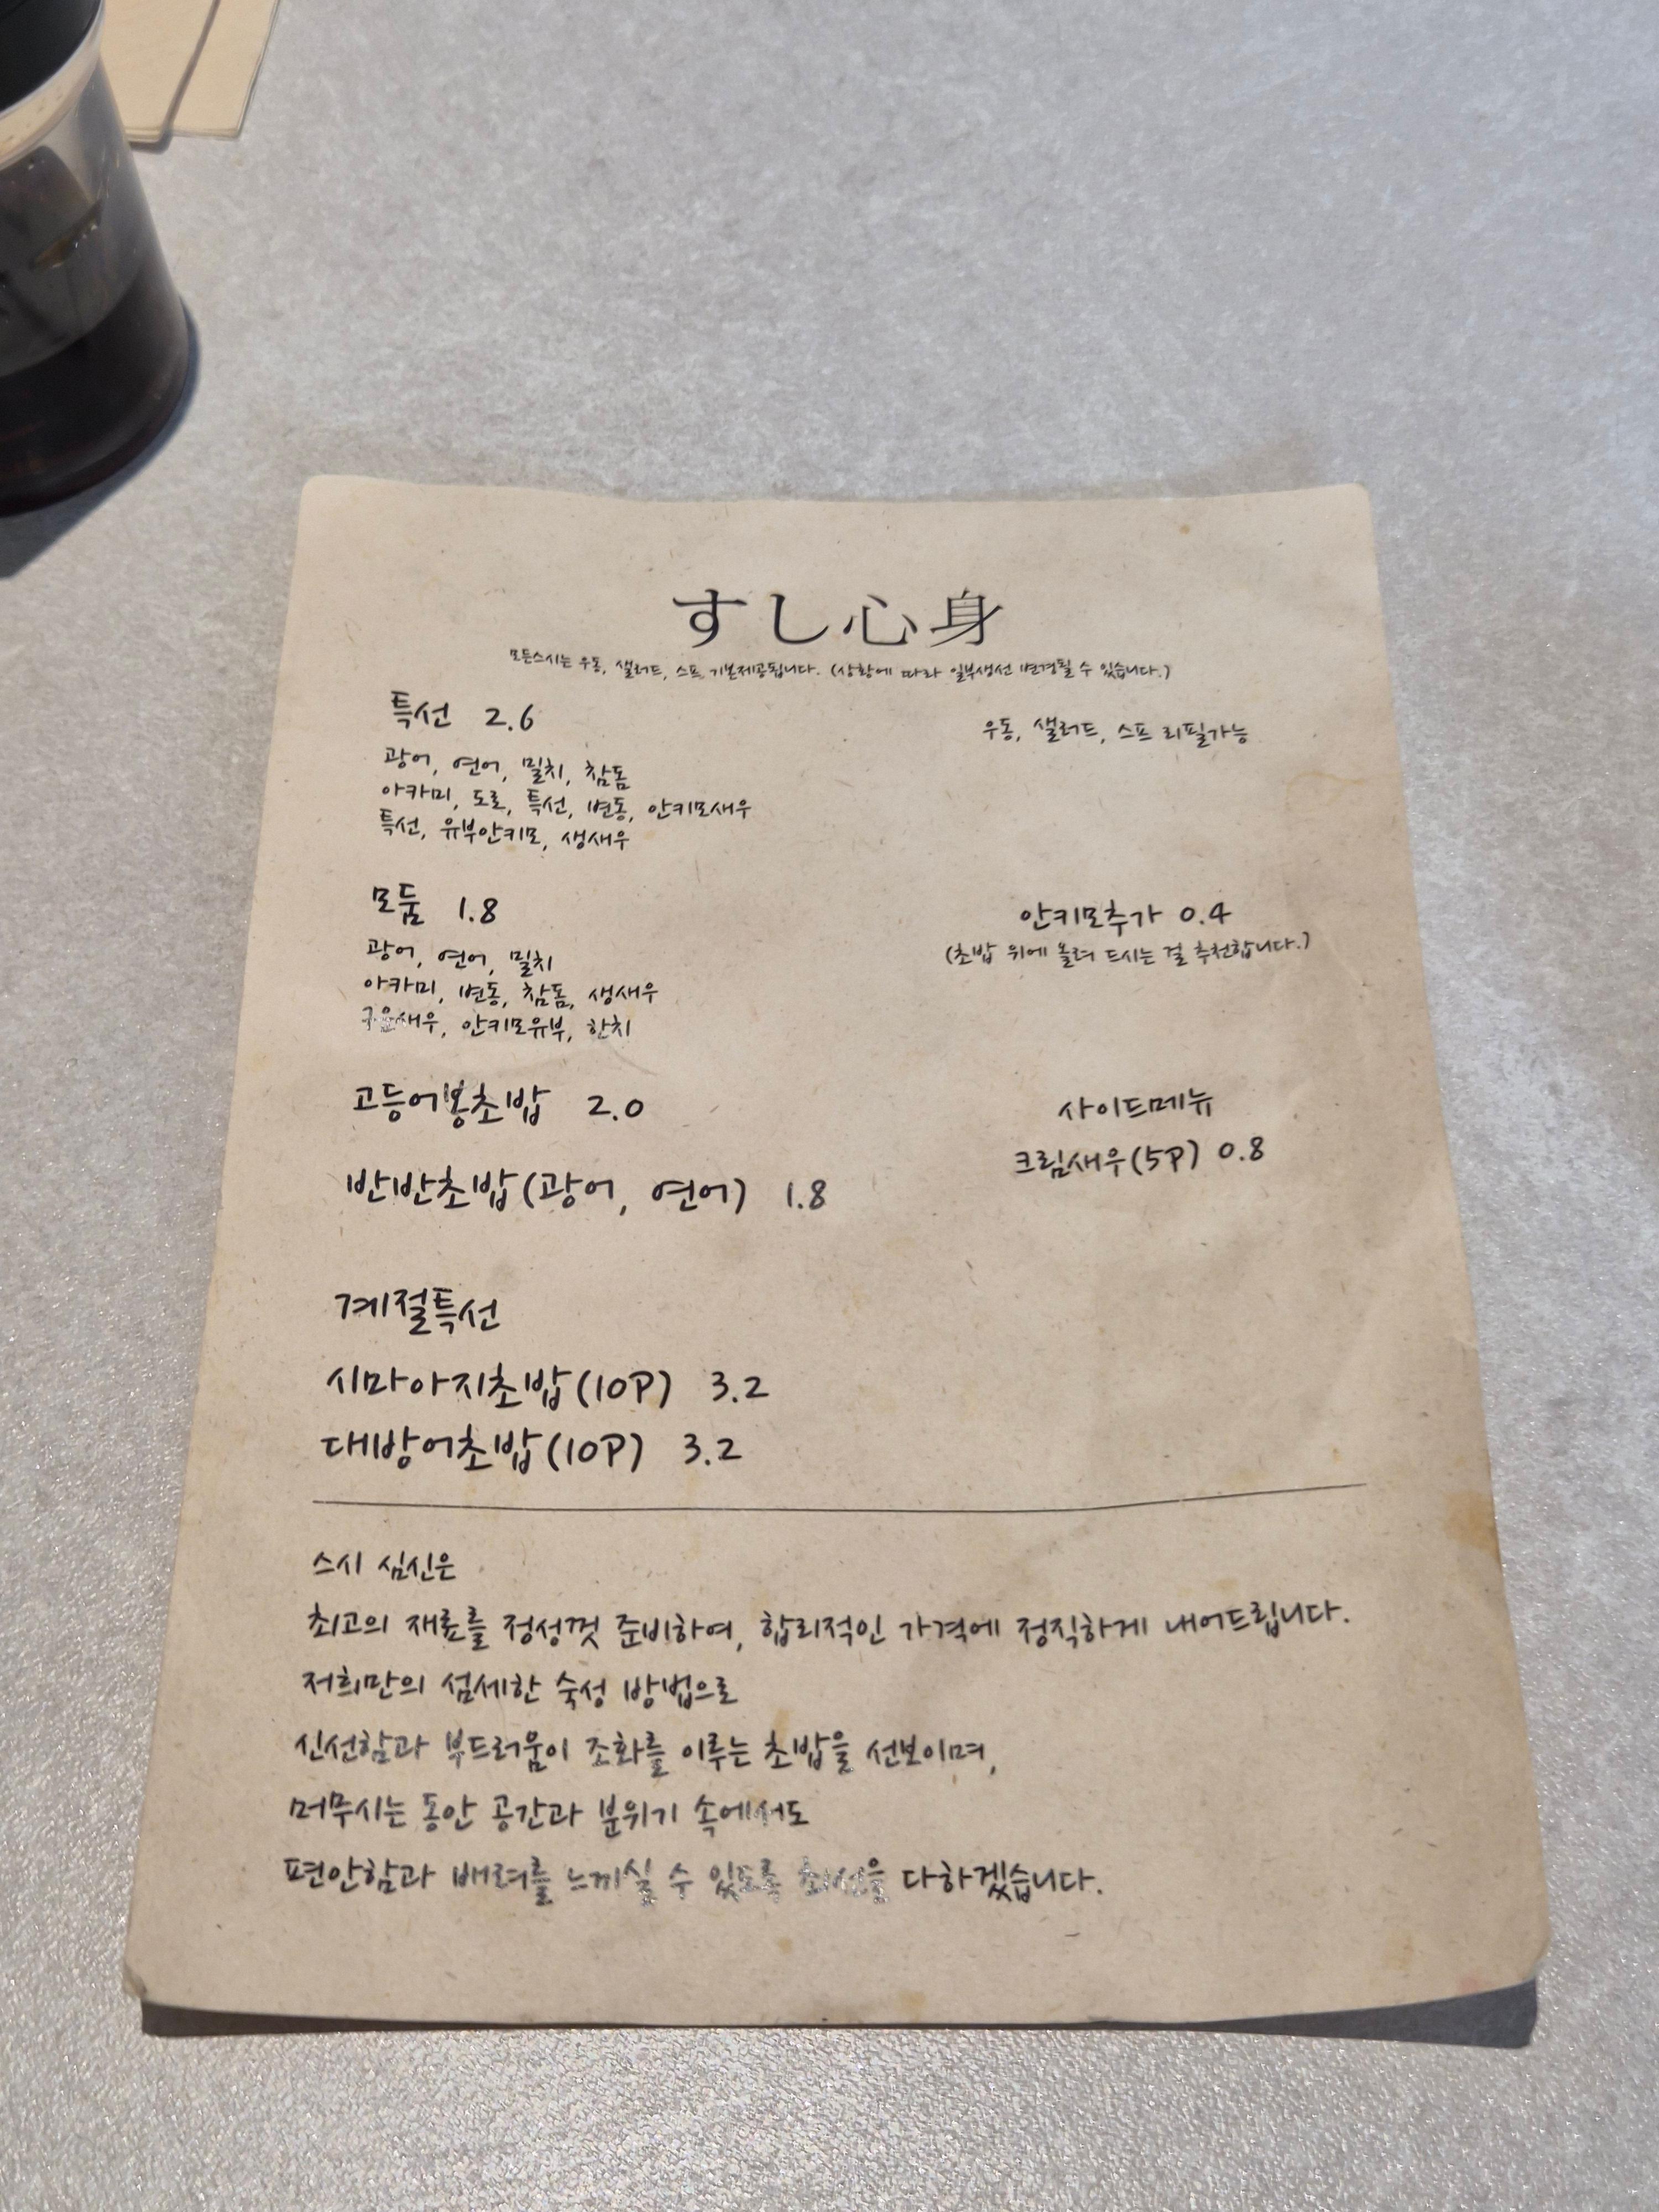 すし心身
모든스시는 우동, 샐러드, 스프 기본제공됩니다. (상황에 따라 일부생선 변경될 수 있습니다.)
특선 2.6
우동, 샐러드, 스프 리필가능
광어, 연어, 밀치, 참돔
아카미, 도로, 특선, 변동, 안키모새우
특선, 유부안키모, 생새우
모둠 1.8
광어, 연어, 밀치
아카미, 변동, 참돔, 생새우
구운새우, 안키모유부, 한치
안키모추가 0.4
(초밥 위에 올려 드시는 걸 추천합니다.)
고등어봉초밥 2.0
반반초밥(광어, 연어) 1.8
사이드메뉴
크림새우(5P) 0.8
계절특선
시마아지초밥(10P) 3.2
대방어초밥(10P) 3.2
스시 심신은
최고의 재료를 정성껏 준비하여, 합리적인 가격에 정직하게 내어드립니다.
저희만의 섬세한 숙성 방법으로
신선함과 부드러움이 조화를 이루는 초밥을 선보이며,
머무시는 동안 공간과 분위기 속에서도
편안함과 배려를 느끼실 수 있도록 최선을 다하겠습니다.